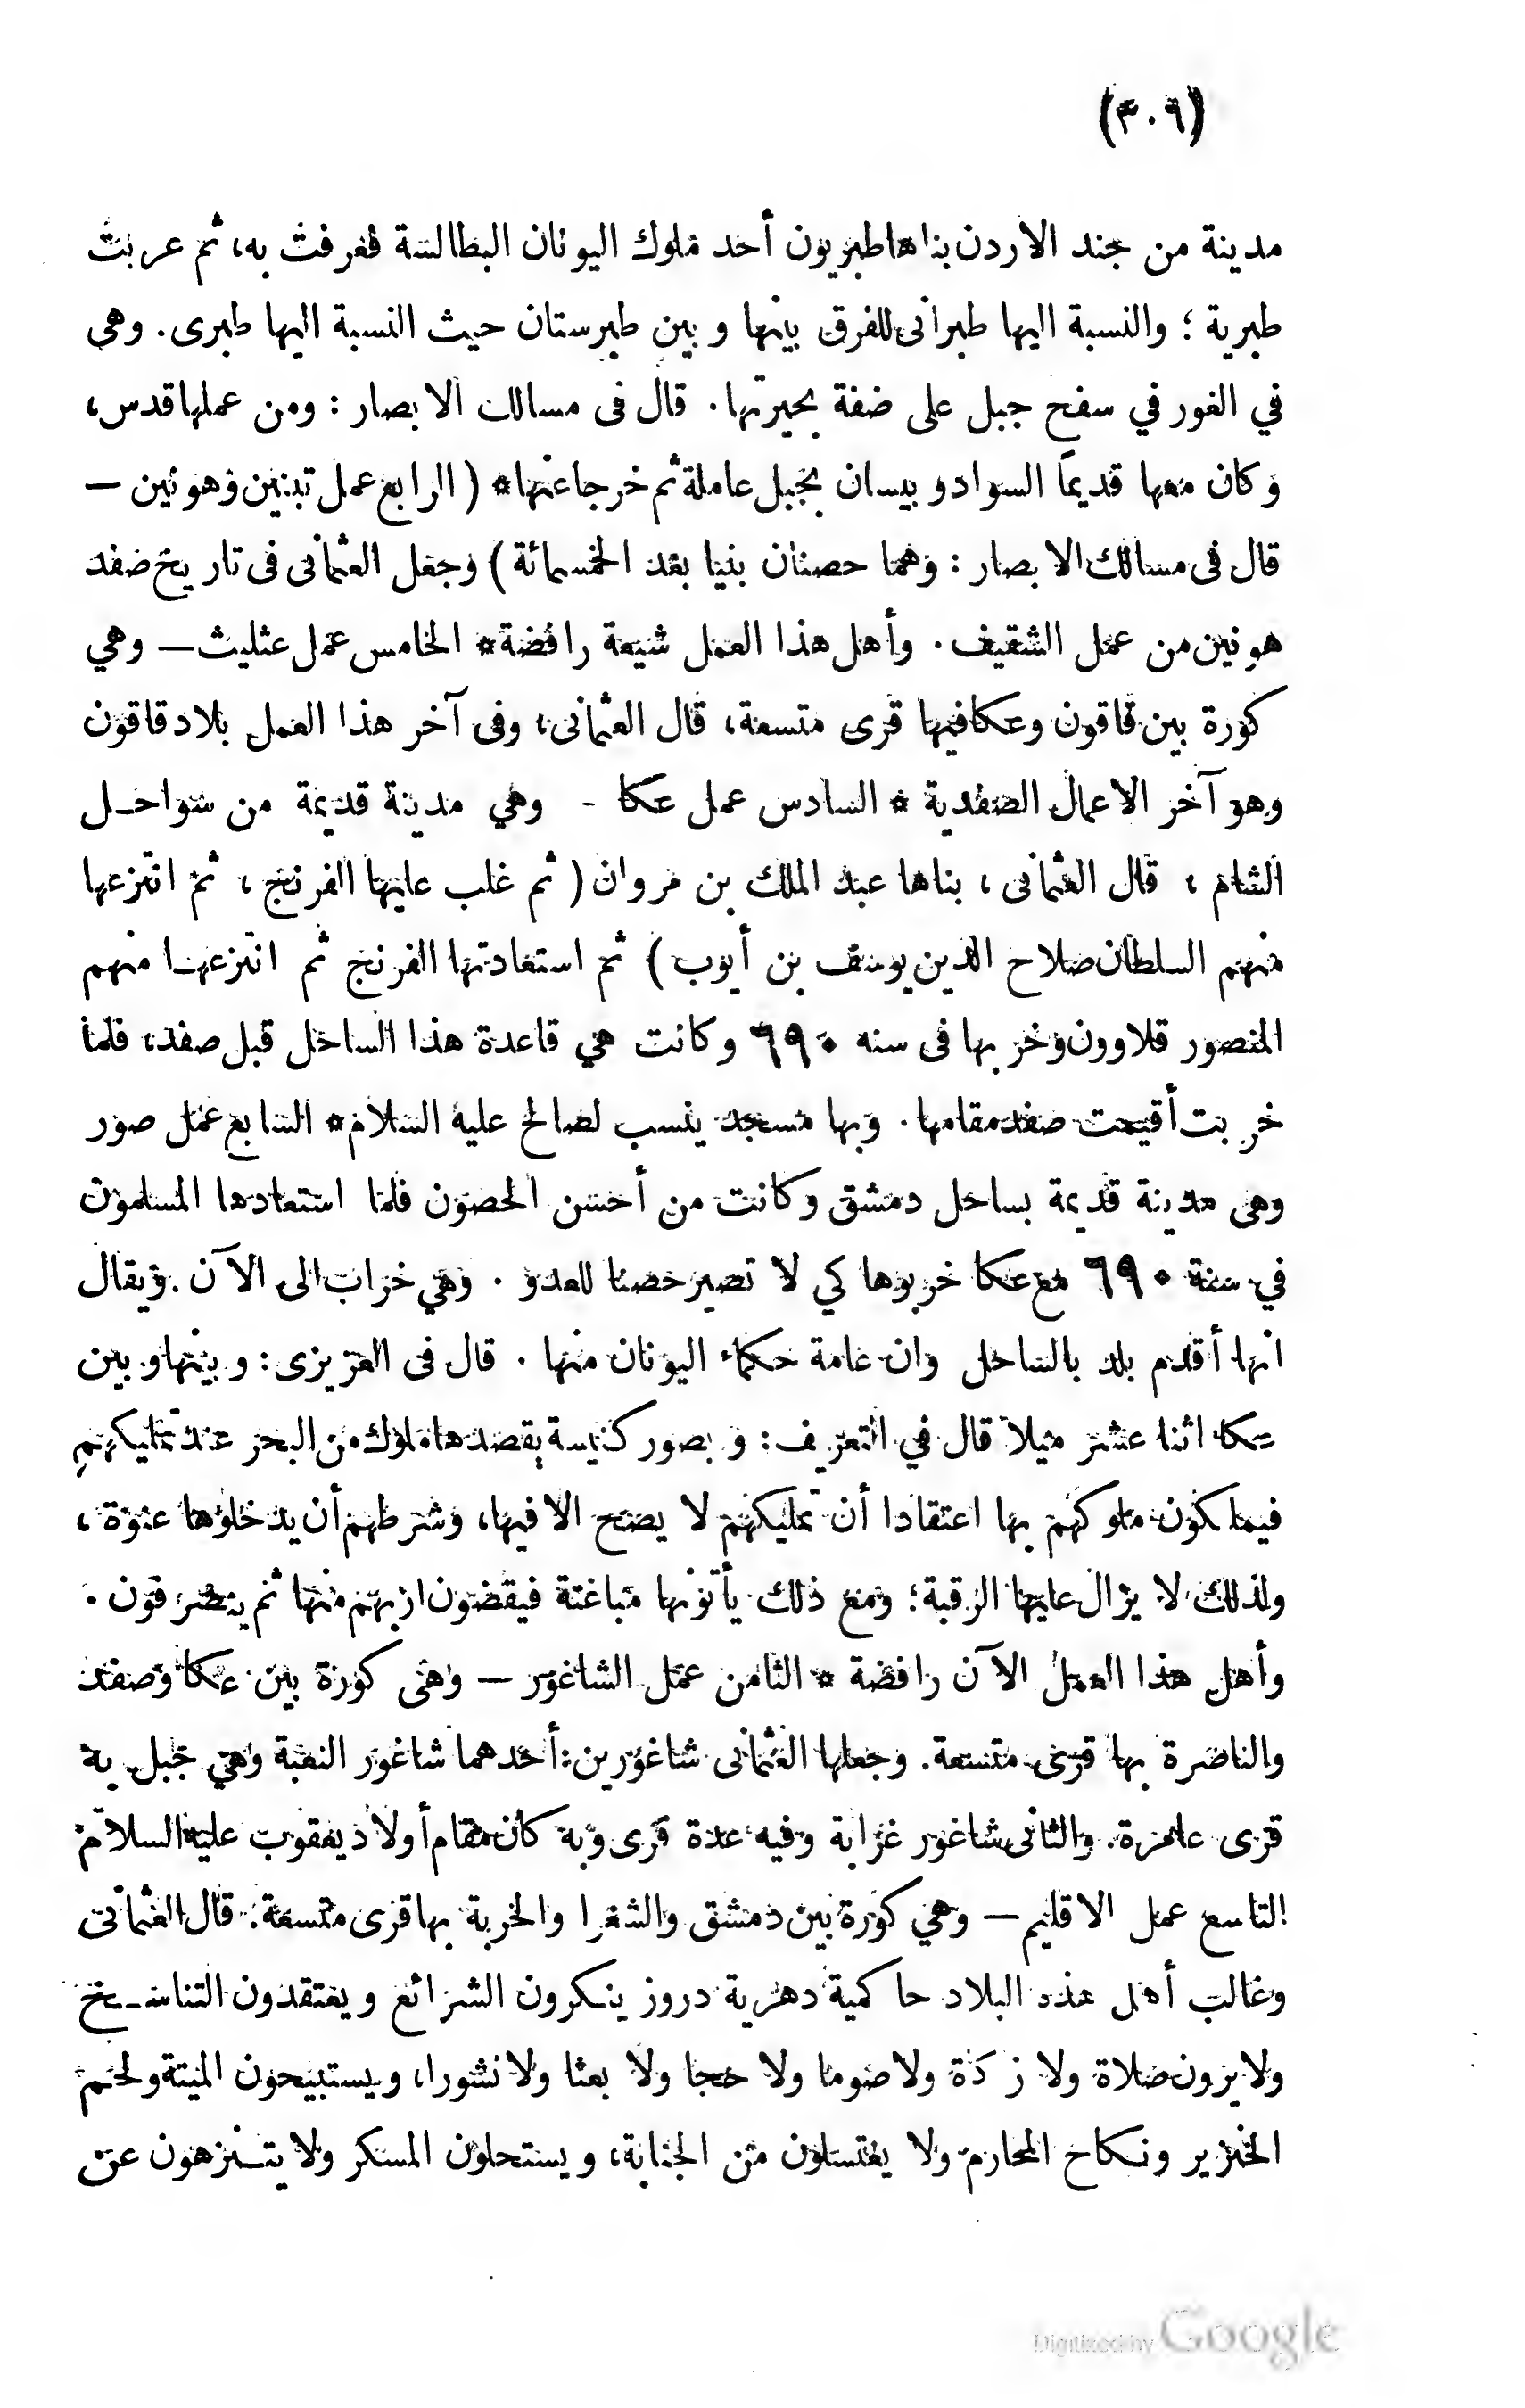 (٣٠٩)
مدينة من جند الاردن بناها طبريون أحد ملوك اليونان البطالسة فعرفت به، ثم عربت
طبرية ؛ والنسبة اليها طبرانى للفرق بينها و بين طبرستان حيث النسبة اليها طبرى. وهى
في الغور في سفح جبل على ضفة بحيرتها. قال فى مسالك الا بصار : ومن عملها قدس،
وكان معها قديماً السواد و بيسان بجبل عاملة ثم خرجا عنها* ( الرابع عمل تبنين وهونين —
قال فى مسالك الا بصار : وهما حصنان بنيا بعد الخمسمائة ) وجعل العثمانى فى تاريخ صفد
هونين من عمل الشقيف . وأهل هذا العمل شيعة رافضة* الخامس عمل عثليث — وهي
كورة بين قاقون وعكا فيها قرى متسعة، قال العثمانى، وفى آخر هذا العمل بلاد قاقون
وهو آخر الاعمال الصفدية * السادس عمل عكا - وهي مدينة قديمة من سواحل
الشام ، قال العثمانى ، بناها عبد الملك بن مروان ( ثم غلب عليها الفرنج ، ثم انتزعها
منهم السلطان صلاح الدين يوسف بن أيوب ) ثم استعادتها الفرنج ثم انتزعها منهم
المنصور قلاوون وخربها فى سنه ٦٩٠ وكانت هي قاعدة هذا الساحل قبل صفد، فلما
خربت أقيمت صفد مقامها . وبها مسجد ينسب لصالح عليه السلام* السابع عمل صور
وهى مدينة قديمة بساحل دمشق وكانت من أحسن الحصون فلما استعادها المسلمون
في سنة ٦٩٠ مع عكا خربوها كي لا تصير حصنا للعدو . وهي خراب الى الآن . ويقال
انها أقدم بلد بالساحل وان عامة حكماء اليونان منها . قال فى العزيزى : و بينها و بين
عكا اثنا عشر ميلا قال في التعريف : و بصور كنيسة يقصدها ملوك من البحر عند تمليكهم
فيملكون ملوكهم بها اعتقادا أن تمليكهم لا يصح الا فيها، وشرطهم أن يدخلوها عنوة ،
ولذلك لا يزال عليها الرقبة؛ ومع ذلك يأتونها مباغتة فيقضون اربهم منها ثم ينصرفون .
وأهل هذا العمل الآن رافضة * الثامن عمل الشاغور — وهى كورة بين عكا وصفد
والناصرة بها قرى متسعة . وجعلها العثمانى شاغورين: أحدهما شاغور النعبة وهي جبل به
قرى عامرة . والثانى شاغور غرابة وفيه عدة قرى وبه كان مقام أولاد يعقوب عليه السلام
التاسع عمل الاقليم — وهي كورة بين دمشق والشغرا والخربة بها قرى متسعة . قال العثمانى
وغالب أهل هذه البلاد حاكمية دهرية دروز ينكرون الشرائع ويعتقدون التناسخ
ولا يرون صلاة ولا زكاة ولا صوما ولا حجا ولا بعثا ولا نشورا، ويستبيحون الميتة ولحم
الخنزير ونكاح المحارم ولا يغتسلون من الجنابة، ويستحلون المسكر ولا يتنزهون عن
Digitized by Google